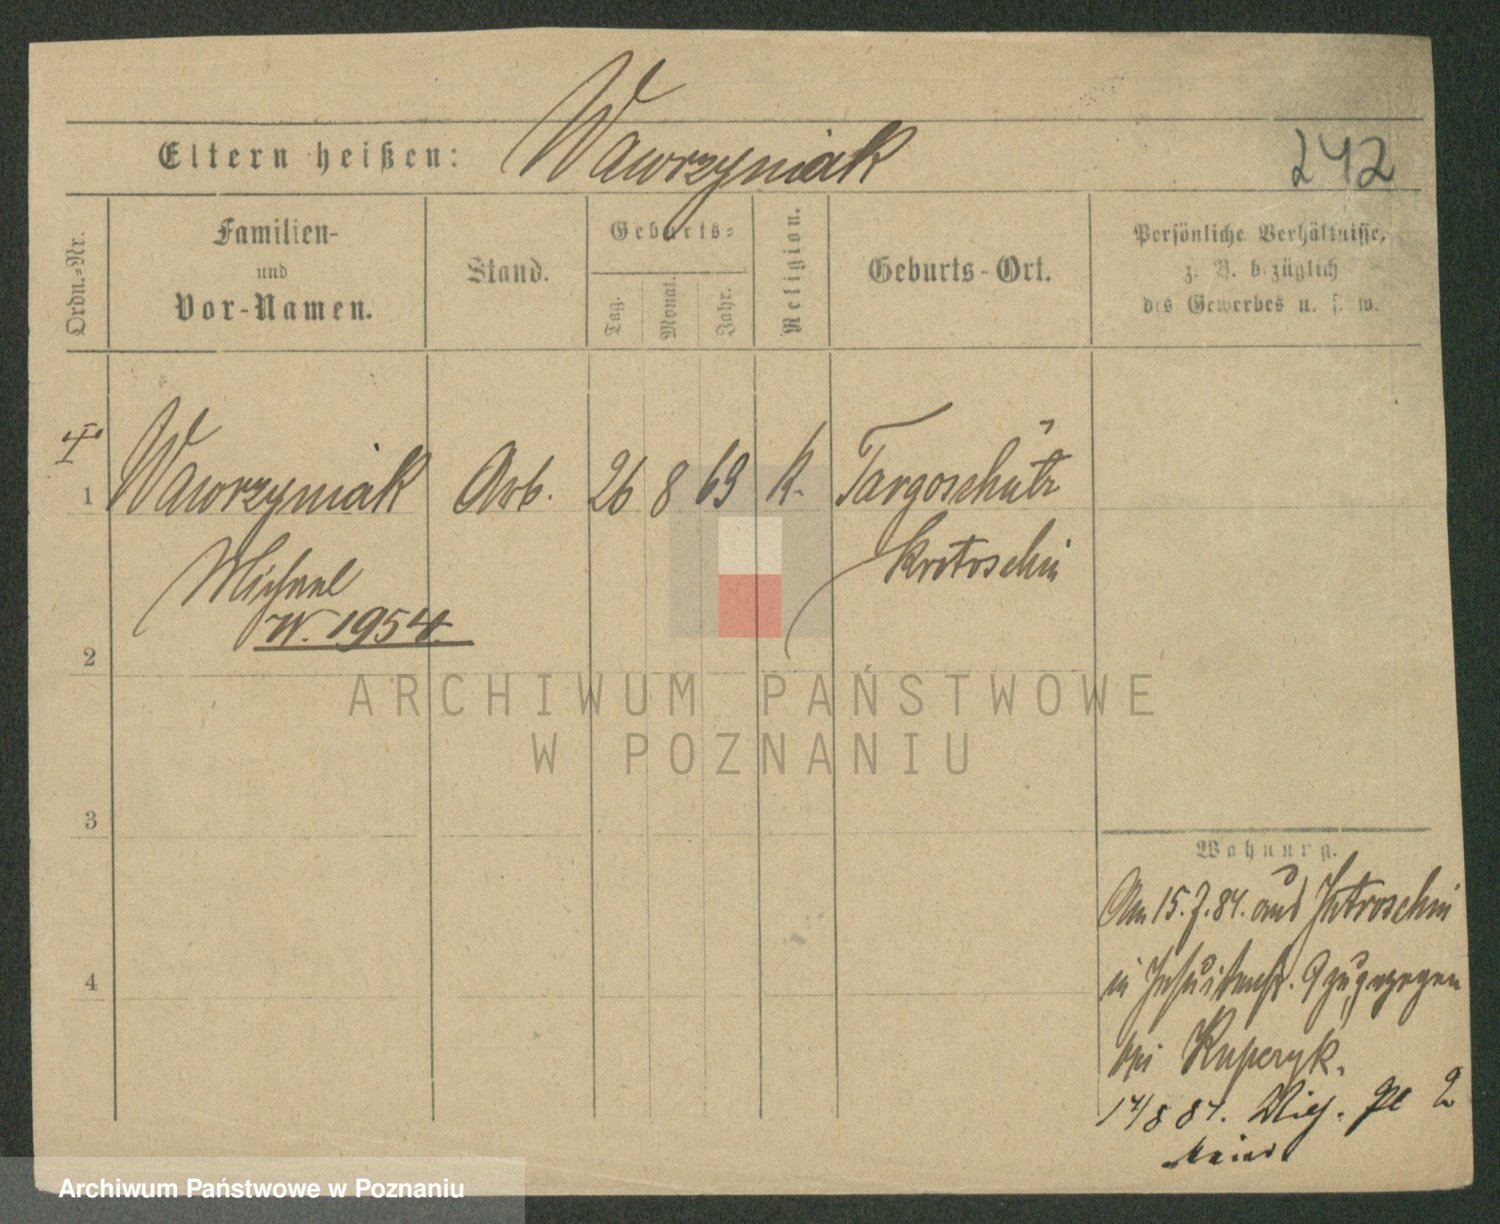 Eltern heißen: Wawrzyniak
242
Ordn.-Nr.
Familien-
und
Vor-Namen.
Stand.
Geburts-
Tag.
Monat.
Jahr.
Religion.
Geburts-Ort.
Persönliche Verhältnisse,
z. B. bezüglich
des Gewerbes u. s. w.
1 Wawrzyniak Arb. 26 8 69 k. Targoschütz
Krotoschin
Michael
W. 1954.
2
ARCHIWUM PAŃSTWOWE
W POZNANIU
3
4
Wohnung.
Am 15. 7. 84. aus Jutroschin
in Jesuitenstr. 9 zugezogen
bei Kasperzyk.
14/8 84. Pl 2
Archiwum Państwowe w Poznaniu